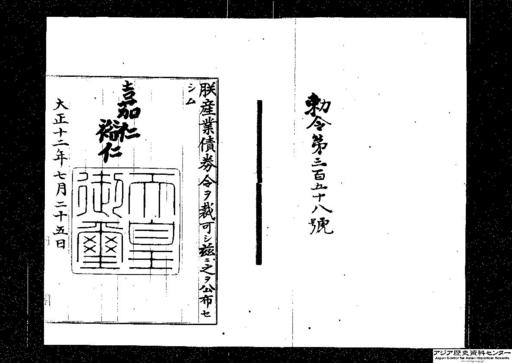 勅令第三百五十八號
朕産業債券令ヲ裁可シ茲ニ之ヲ公布セ
シム
嘉仁
裕仁
天皇
御璽
大正十二年七月二十五日
アジア歴史資料センター
Japan Center for Asian Historical Records